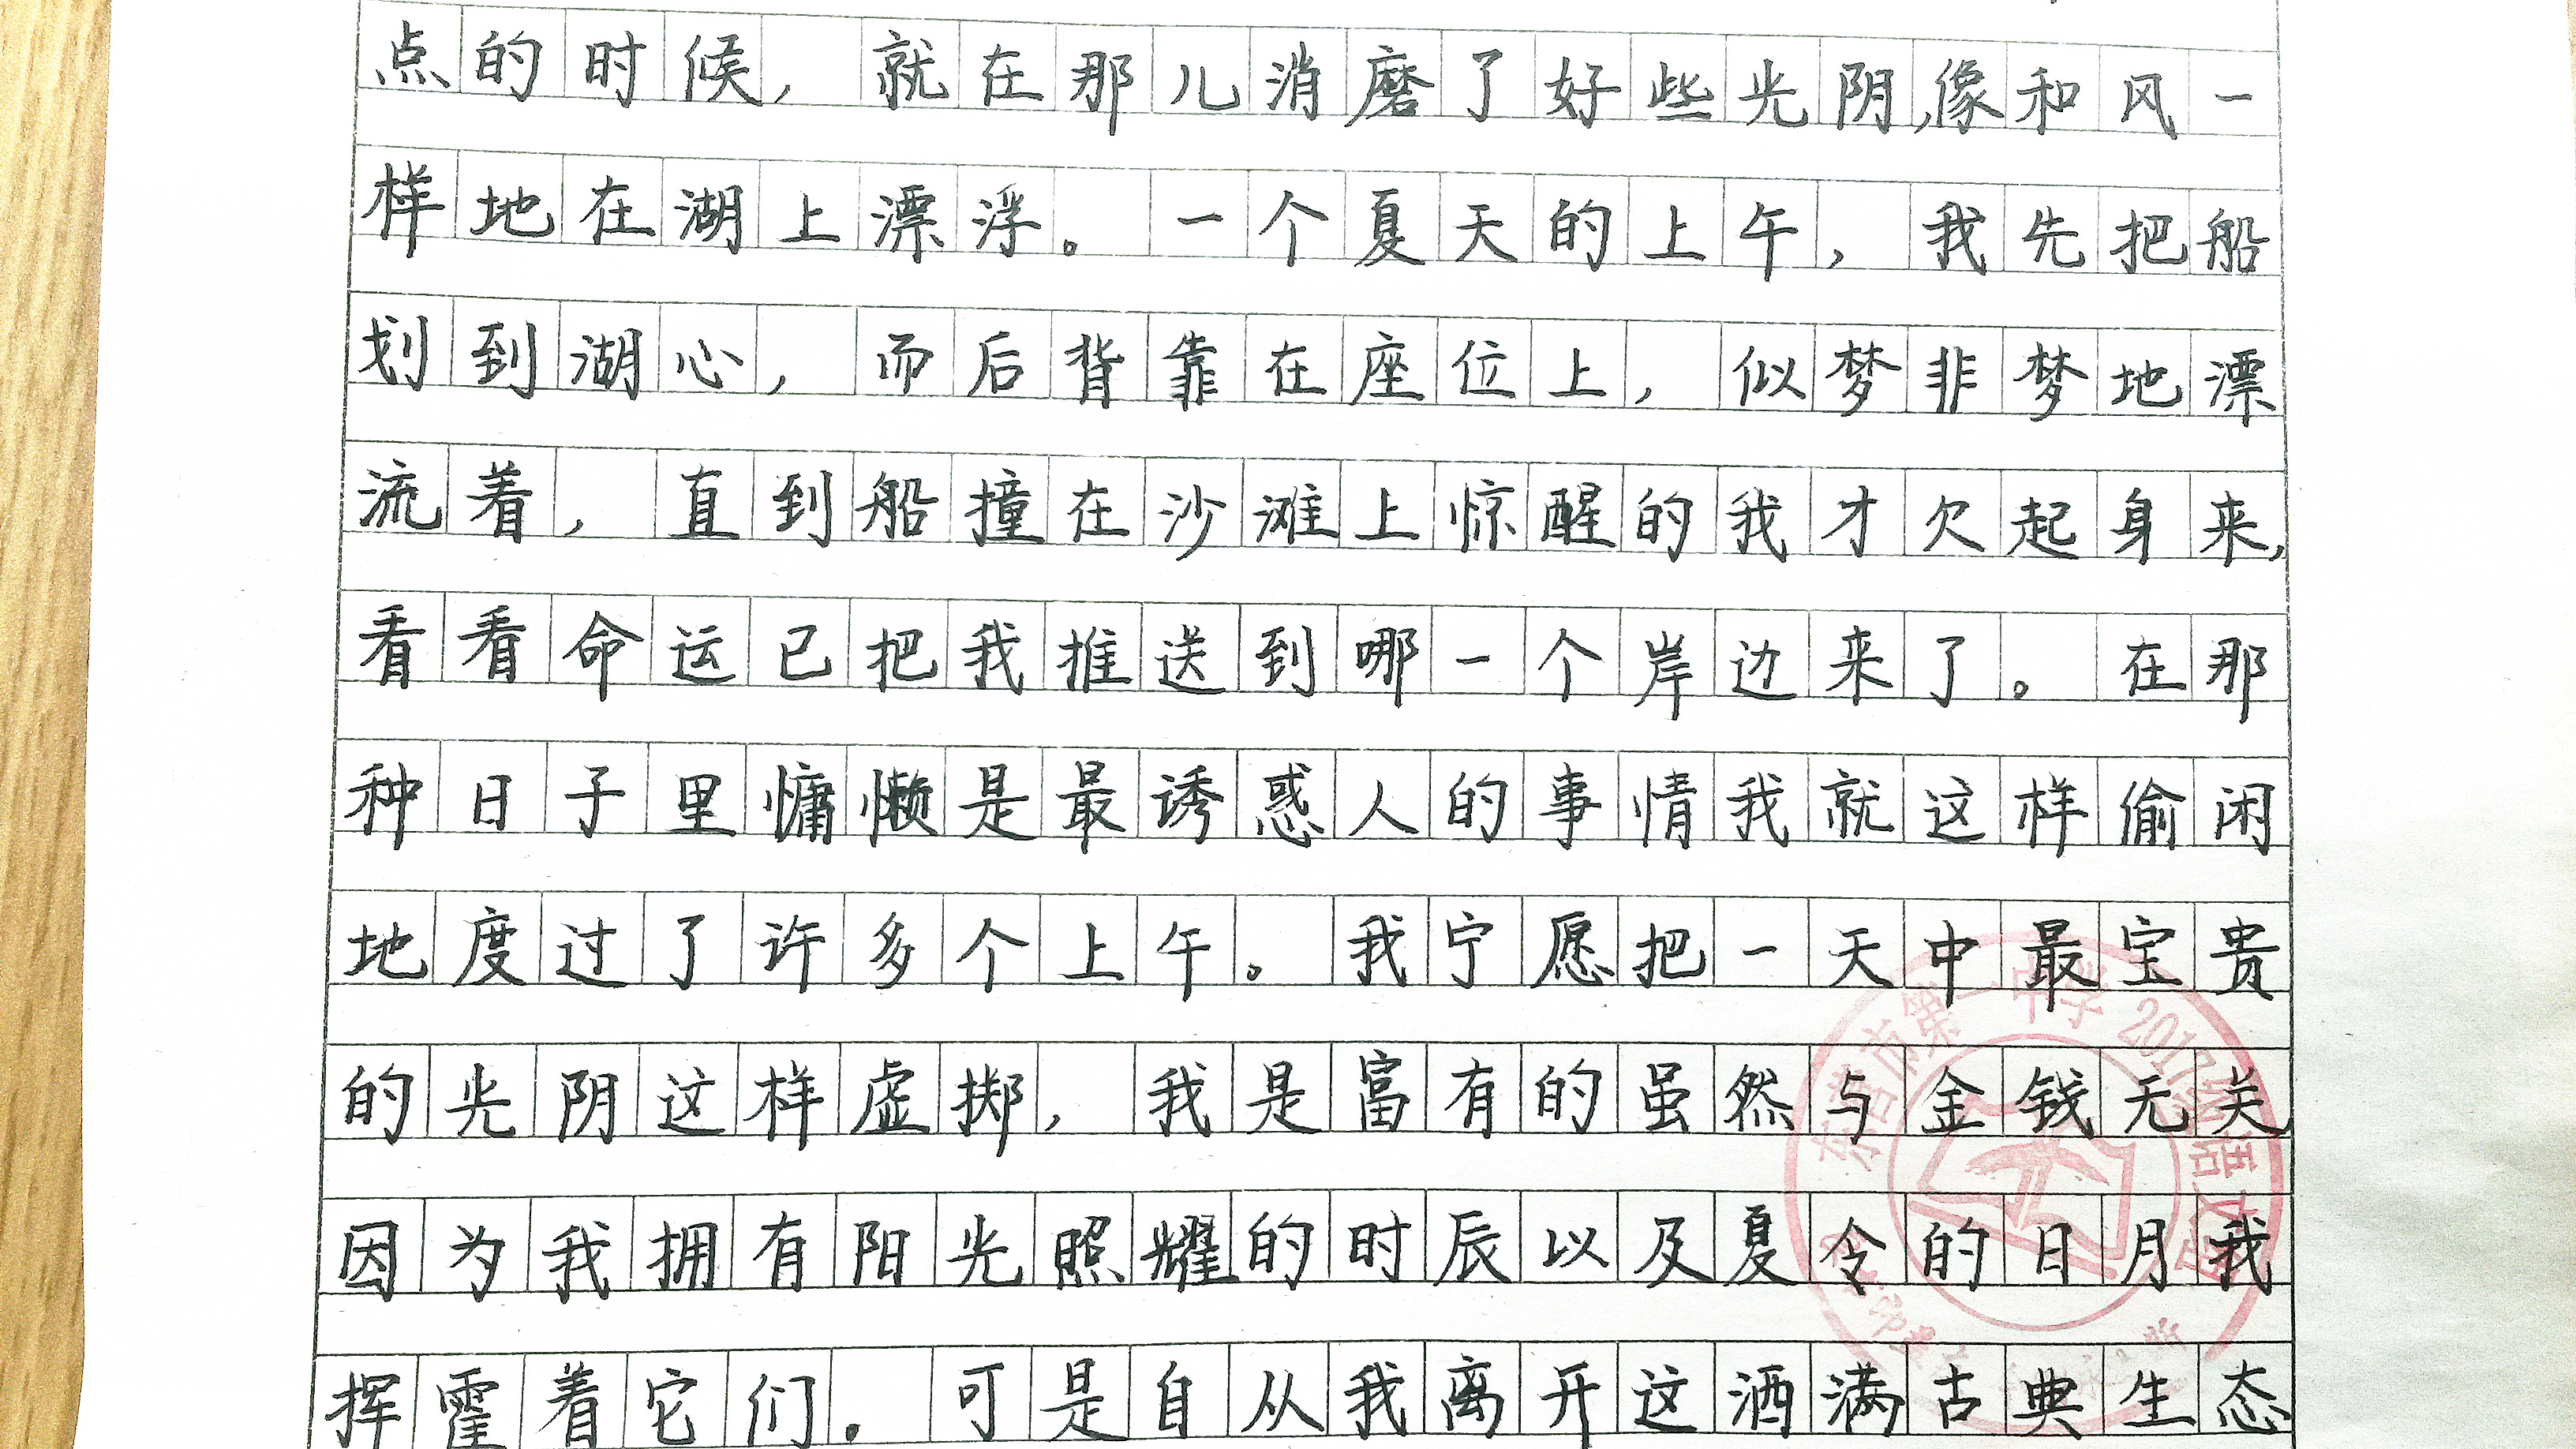 点的时候，就在那儿消磨了好些光阴，像和风一
样地在湖上漂浮。一个夏天的上午，我先把船
划到湖心，而后背靠在座位上，似梦非梦地漂
流着，直到船撞在沙滩上惊醒的我才欠起身来，
看看命运已把我推送到哪一个岸边来了。在那
种日子里慵懒是最诱惑人的事情我就这样偷闲
地度过了许多个上午。我宁愿把一天中最宝贵
的光阴这样虚掷，我是富有的虽然与金钱无关
因为我拥有阳光照耀的时辰以及夏令的日月我
挥霍着它们。可是自从我离开这洒满古典生态
市第一中学 2017